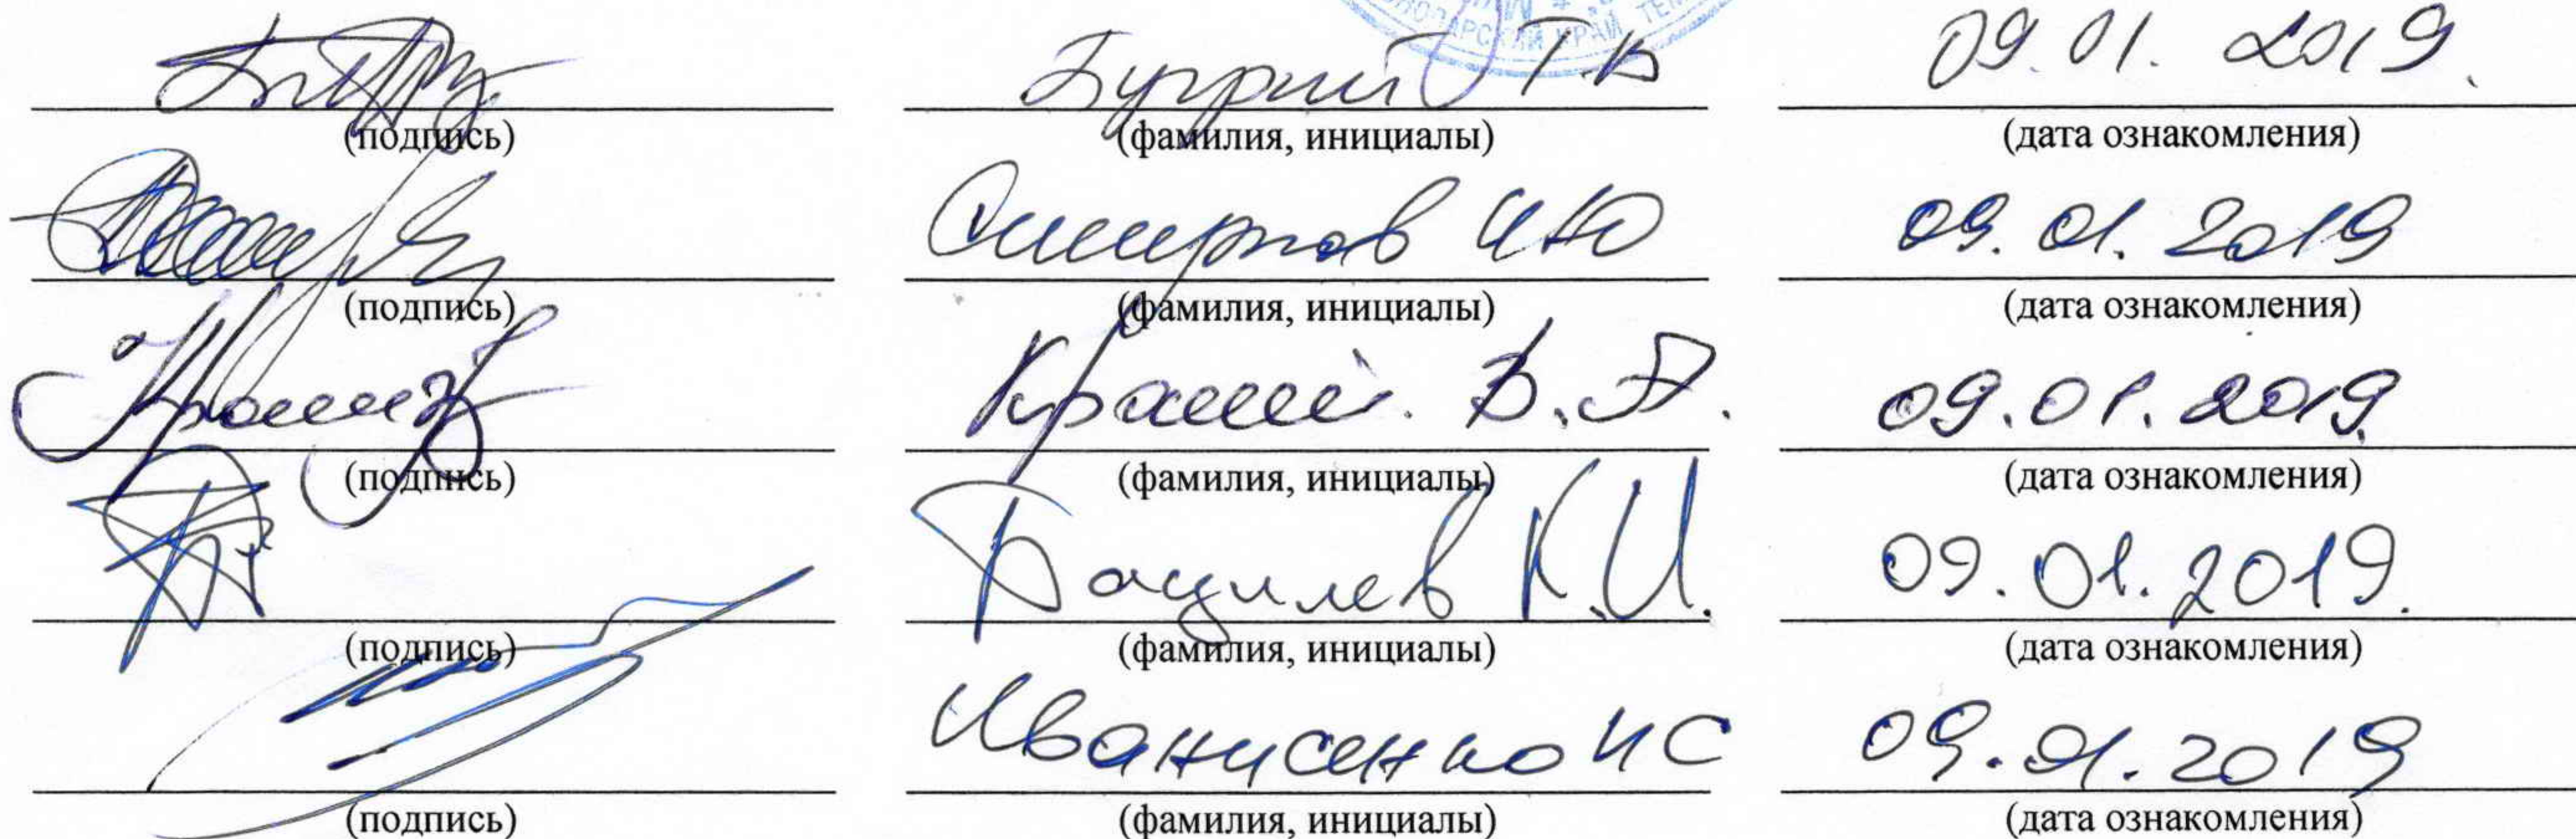 КРАСНОДАРСКИЙ КРАЙ ТЕМ
Т.В 09.01.2019.
(подпись) (фамилия, инициалы) (дата ознакомления)
Смирнов И Ю 09.01.2019
(подпись) (фамилия, инициалы) (дата ознакомления)
В.П. 09.01.2019
(подпись) (фамилия, инициалы) (дата ознакомления)
Бацилев К.И. 09.01.2019.
(подпись) (фамилия, инициалы) (дата ознакомления)
Иванисенко И С 09.01.2019
(подпись) (фамилия, инициалы) (дата ознакомления)